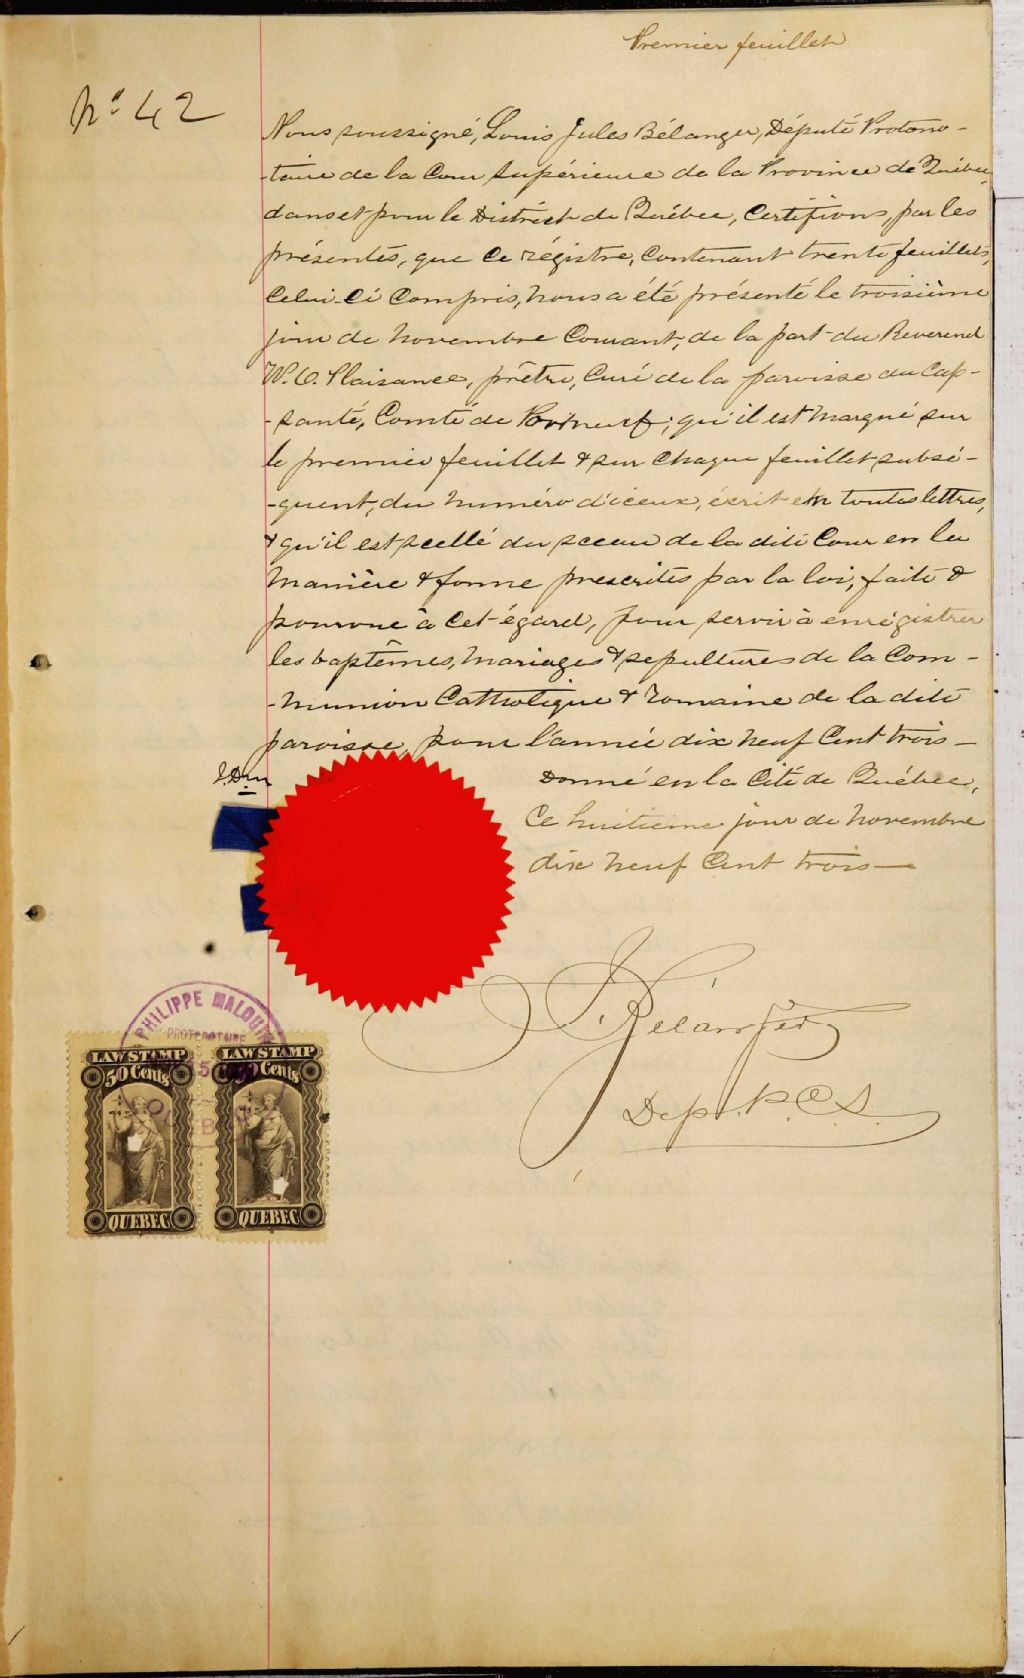 Premier feuillet
No 42
Nous soussigné, Louis Jules Bélanger, Député Protono-
-taire de la Cour Supérieure de la Province de Québec,
dans et pour le District de Québec, Certifions, par les
présentés, que ce régistre, contenant trente feuillets,
celui-ci compris, nous a été présenté le troisième
jour de novembre courant, de la part du Reverend
W. O. Plaisance, prêtre, Curé de la paroisse du Cap-
-santé, Comté de Portneuf; qu'il est marqué sur
le premier feuillet & sur chaque feuillet subsé-
-quent, du numéro d'iceux, écrit en toutes lettres,
& qu'il est scellé du sceau de la dite Cour en la
manière & forme prescrites par la loi, faite &
pourvue à cet égard, pour servir à enrégistrer
les baptêmes, mariages & sepultures de la Com-
-munion Catholique & romaine de la dite
paroisse, pour l'année dix neuf cent trois -
Donné en la Cité de Québec,
ce huitième jour de novembre
dix neuf cent trois -
PHILIPPE MALOUIN
PROTONOTAIRE
LAW STAMP LAW STAMP
50 Cents 50 Cents
QUEBEC QUEBEC
J. Bélanger
Dep. P.C.S.